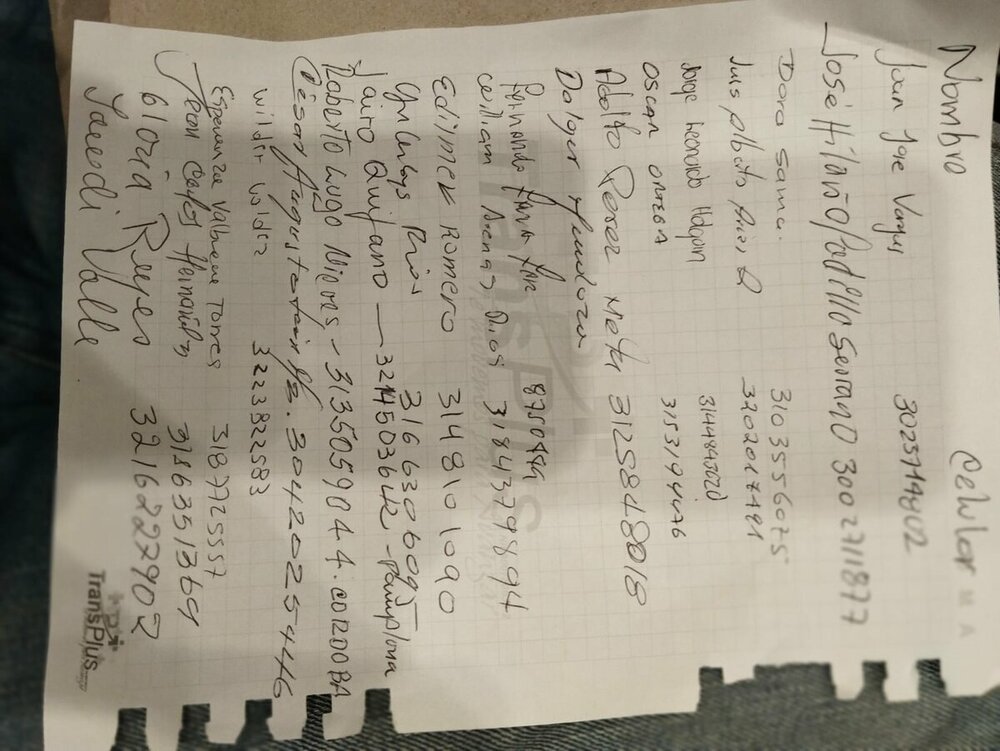 Nombro Celular
Juan José Vargas
José Hilario Padillo Serrano 3002711877
Dora Sanma. 3103556075
Luis Alberto Ariz Q 3202017491
Jorge Leonardo Holguin
OSCAR ORTEGA 3153194476
Adolfo Perez Meta 3125848018
Dolger Mendoza
8750444
William Arenas Rios 3184379894
Edlimek Romero 3148101090
Yulubys Rios 3166306095
Jairo Quijano — 3214503642 - Pamplona
Roberto Lugo Nieves - 3135059044. CORDOBA
César Augusto 3042025446
wildir wildir 3223822583
Esperanza Valbuena Torres 3187725557
Jean Carlos Hernández 3186351369
Gloria Reyes 3216227902
Yanedi Valle
TransPlus